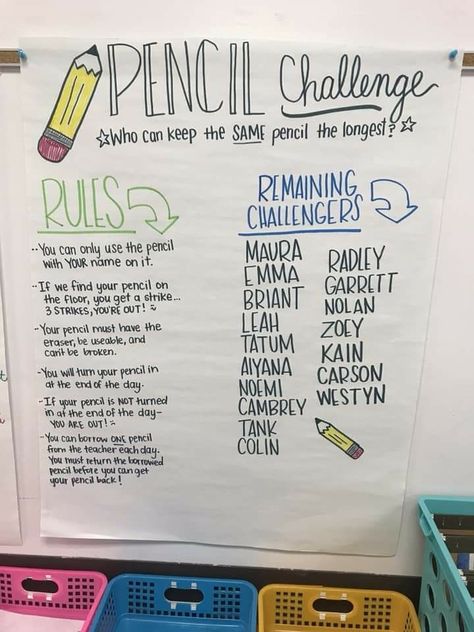 PENCIL Challenge
☆Who can keep the SAME pencil the longest?☆
RULES
-You can only use the pencil
with YOUR name on it.
-If we find your pencil on
the floor, you get a strike...
3 STRIKES, YOU'RE OUT!
-Your pencil must have the
eraser, be useable, and
can't be broken.
-You will turn your pencil in
at the end of the day.
-If your pencil is NOT turned
in at the end of the day-
YOU ARE OUT!
-You can borrow ONE pencil
from the teacher each day.
You must return the borrowed
pencil before you can get
your pencil back!
REMAINING
CHALLENGERS
MAURA
EMMA
BRIANT
LEAH
TATUM
AIYANA
NOEMI
CAMBREY
TANK
COLIN
RADLEY
GARRETT
NOLAN
ZOEY
KAIN
CARSON
WESTYN